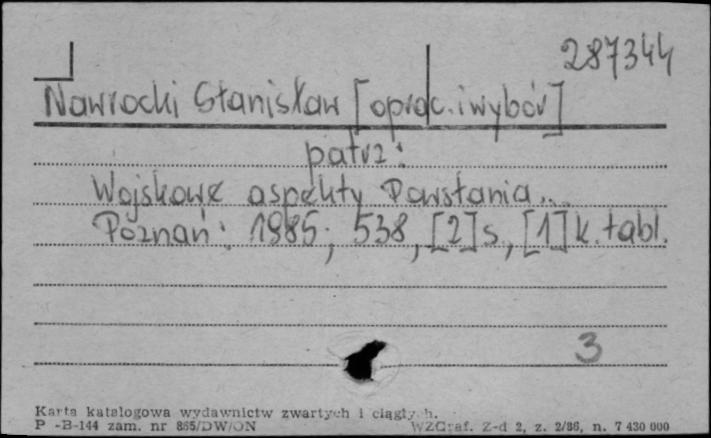 287344
Nawrocki Stanisław [oprac. i wybór]
patrz:
Wojskowe aspekty Powstania...
Poznań: 1985; 538, [2] s, [1] k. tabl.
3
Karta katalogowa wydawnictw zwartych i ciągłych.
P -B-144 zam. nr 865/DW/ON WZGraf. Z-d 2, z. 2/86, n. 7 430 000